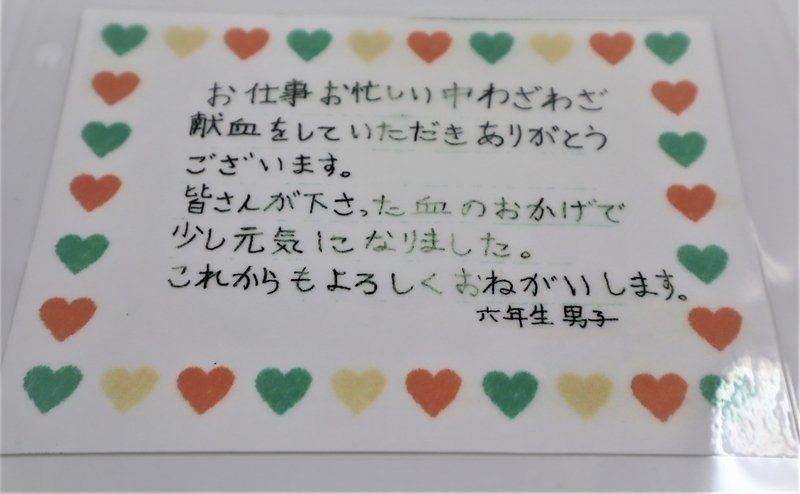 お仕事お忙しい中わざわざ
献血をしていただきありがとう
ございます。
皆さんが下さった血のおかげで
少し元気になりました。
これからもよろしくおねがいします。
六年生 男子